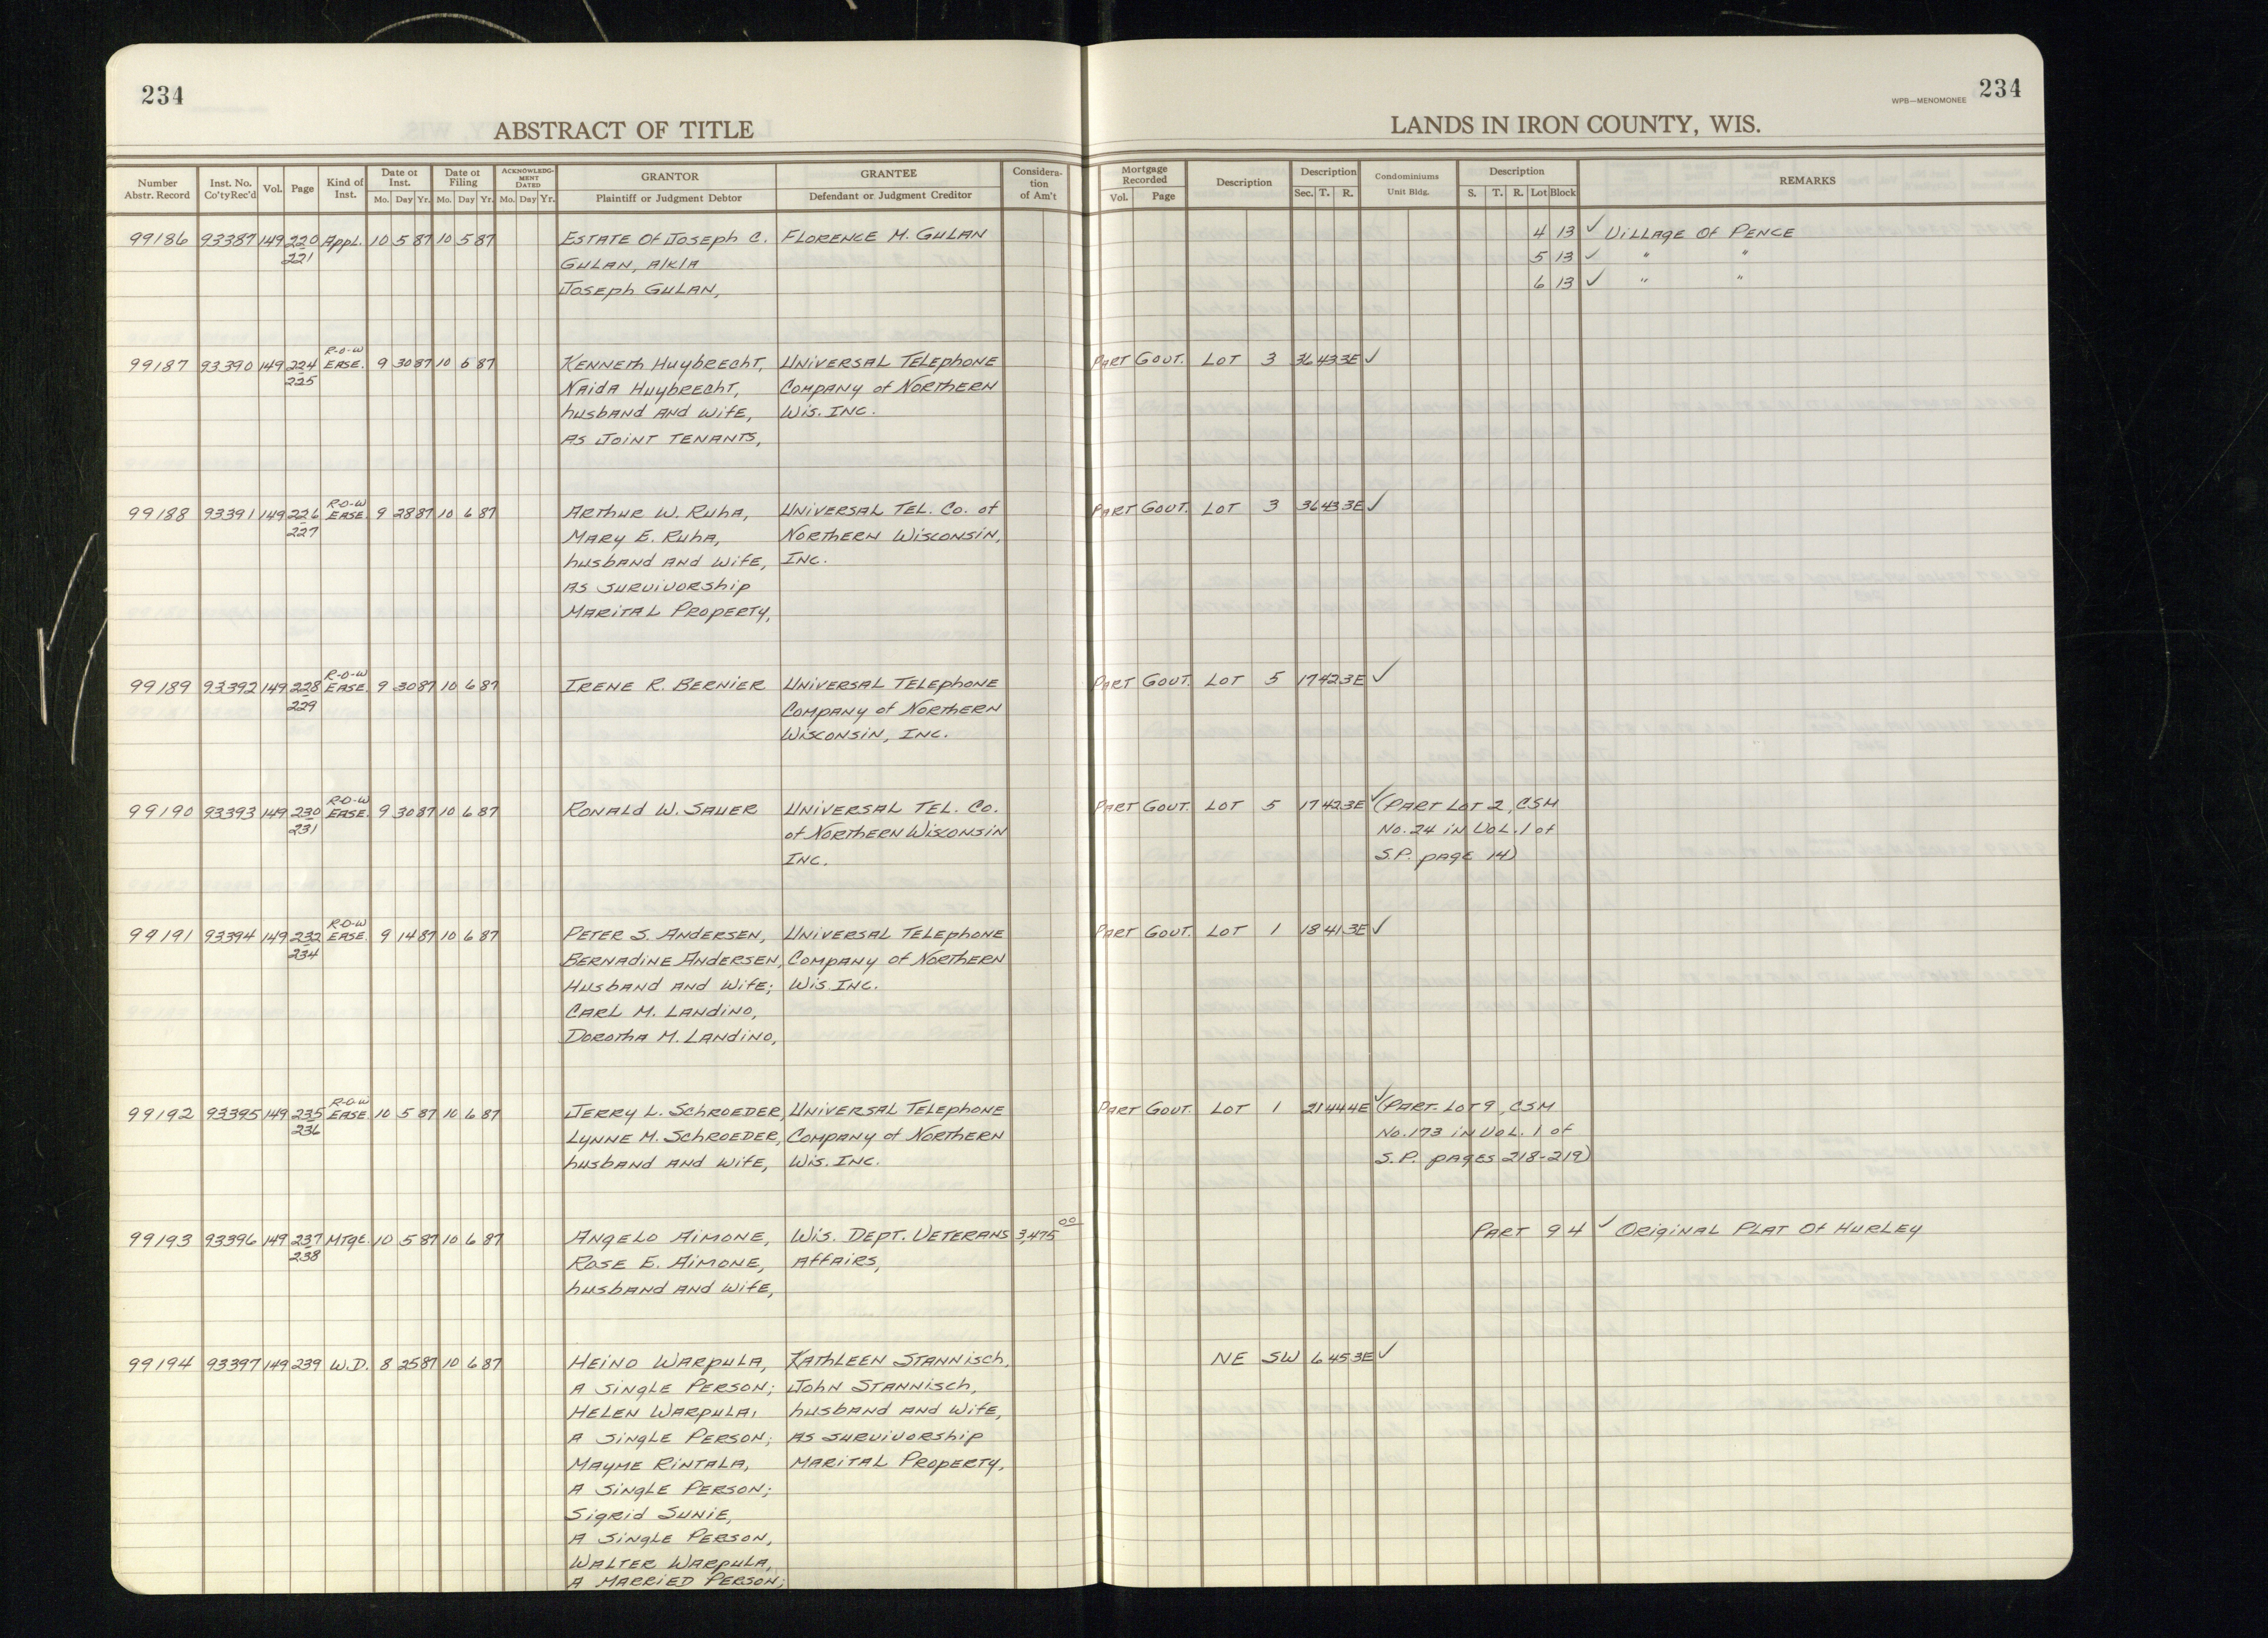 234
ABSTRACT OF TITLE
LANDS IN IRON COUNTY, WIS.
WPB—MENOMONEE 234
Number Abstr. Record | Inst. No. Co'tyRec'd | Vol. | Page | Kind of Inst. | Date of Inst. Mo. Day Yr. | Date of Filing Mo. Day Yr. | ACKNOWLEDGMENT DATED Mo. Day Yr. | GRANTOR Plaintiff or Judgment Debtor | GRANTEE Defendant or Judgment Creditor | Consideration of Am't | Mortgage Recorded Vol. Page | Description | Description Sec. T. R. | Condominiums Unit Bldg. | Description S. T. R. Lot Block | REMARKS
99186 93387 149 220 Appl. 10 5 87 10 5 87 ESTATE Of Joseph C. FLORENCE M. GULAN 4 13 ✓ VILLAGE Of PENCE
221 GULAN, A/K/A 5 13 ✓ " "
Joseph GULAN, 6 13 ✓ " "
R-O-W
99187 93390 149 224 EASE. 9 30 87 10 6 87 KENNETH HUYBRECHT, UNIVERSAL TELEPHONE PART GOVT. LOT 3 36 43 3E ✓
225 NAIDA HUYBRECHT, COMPANY of NORTHERN
husband AND wife, Wis. INC.
AS JOINT TENANTS,
R-O-W
99188 93391 149 226 EASE. 9 28 87 10 6 87 ARTHUR W. RUHA, UNIVERSAL TEL. Co. of PART GOVT. LOT 3 36 43 3E ✓
227 MARY E. RUHA, NORTHERN WISCONSIN,
husband AND wife, INC.
AS SURVIVORSHIP
MARITAL PROPERTY,
R-O-W
99189 93392 149 228 EASE. 9 30 87 10 6 87 IRENE R. BERNIER UNIVERSAL TELEPHONE PART GOVT. LOT 5 17 42 3E ✓
229 COMPANY of NORTHERN
WISCONSIN, INC.
R-O-W
99190 93393 149 230 EASE. 9 30 87 10 6 87 RONALD W. SAUER UNIVERSAL TEL. Co. PART GOVT. LOT 5 17 42 3E ✓ (PART LOT 2, CSM
231 of NORTHERN WISCONSIN No. 24 IN VOL. 1 of
INC. S.P. page 14)
R-O-W
99191 93394 149 232 EASE. 9 14 87 10 6 87 PETER S. ANDERSEN, UNIVERSAL TELEPHONE PART GOVT. LOT 1 18 41 3E ✓
234 BERNADINE ANDERSEN, COMPANY of NORTHERN
HUSBAND AND WIFE; Wis. INC.
CARL M. LANDINO,
DOROTHA M. LANDINO,
R-O-W
99192 93395 149 235 EASE. 10 5 87 10 6 87 JERRY L. SCHROEDER, UNIVERSAL TELEPHONE PART GOVT. LOT 1 21 44 4E ✓ (PART. LOT 9, CSM
236 LYNNE M. SCHROEDER, COMPANY of NORTHERN No. 173 IN VOL. 1 of
husband AND wife, Wis. INC. S.P. pages 218-219)
99193 93396 149 237 MTGE. 10 5 87 10 6 87 ANGELO AIMONE, Wis. DEPT. VETERANS 3,475 00 PART 9 4 ✓ ORIGINAL PLAT Of HURLEY
238 ROSE E. AIMONE, AFFAIRS,
husband AND wife,
99194 93397 149 239 W.D. 8 25 87 10 6 87 HEINO WARPULA, KATHLEEN STANNISCH, NE SW 6 45 3E ✓
A SINGLE PERSON; JOHN STANNISCH,
HELEN WARPULA, husband AND wife,
A SINGLE PERSON; AS SURVIVORSHIP
MAYME RINTALA, MARITAL PROPERTY,
A SINGLE PERSON;
SIGRID SUNIE,
A SINGLE PERSON,
WALTER WARPULA,
A MARRIED PERSON;